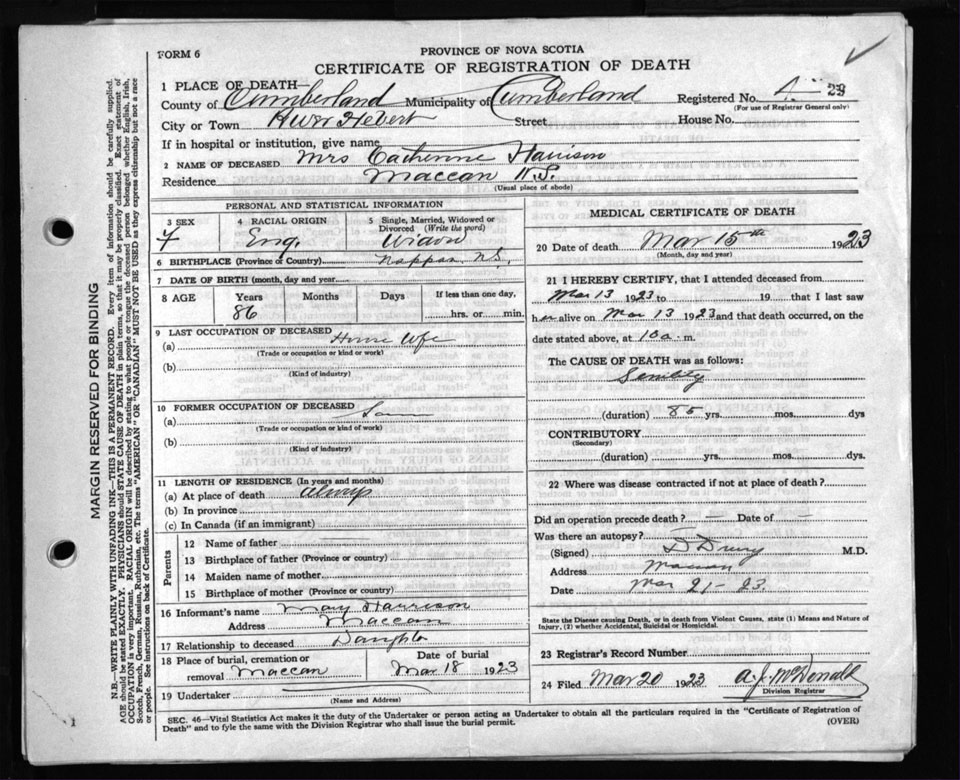 FORM 6
PROVINCE OF NOVA SCOTIA
CERTIFICATE OF REGISTRATION OF DEATH
1 PLACE OF DEATH—
County of Cumberland Municipality of Cumberland Registered No. 29
(For use of Registrar General only)
City or Town River Hebert Street House No.
If in hospital or institution, give name
2 NAME OF DECEASED Mrs Catherine Harrison
Residence Maccan N.S.
(Usual place of abode)
PERSONAL AND STATISTICAL INFORMATION
3 SEX 4 RACIAL ORIGIN 5 Single, Married, Widowed or Divorced (Write the word)
F Eng. Widow
6 BIRTHPLACE (Province or Country) Nappan N.S.
7 DATE OF BIRTH (month, day and year)
8 AGE Years Months Days If less than one day,
86 hrs. or min.
9 LAST OCCUPATION OF DECEASED
(a) House Wife
(Trade or occupation or kind or work)
(b)
(Kind of industry)
10 FORMER OCCUPATION OF DECEASED
(a) Same
(Trade or occupation or kind or work)
(b)
(Kind of industry)
11 LENGTH OF RESIDENCE (In years and months)
(a) At place of death Always
(b) In province
(c) In Canada (if an immigrant)
Parents
12 Name of father
13 Birthplace of father (Province or country)
14 Maiden name of mother
15 Birthplace of mother (Province or country)
16 Informant's name May Harrison
Address Maccan
17 Relationship to deceased Daughter
18 Place of burial, cremation or removal Maccan Date of burial Mar 18 1923
19 Undertaker
(Name and Address)
MEDICAL CERTIFICATE OF DEATH
20 Date of death Mar 15th 1923
(Month, day and year)
21 I HEREBY CERTIFY, that I attended deceased from
Mar 13 1923 to 19 that I last saw
her alive on Mar 13 1923 and that death occurred, on
date stated above, at 10 a. m.
The CAUSE OF DEATH was as follows:
Senility
(duration) 85 yrs. mos. dys
CONTRIBUTORY
(Secondary)
(duration) yrs. mos. dys.
22 Where was disease contracted if not at place of death?
Did an operation precede death? — Date of —
Was there an autopsy?
(Signed) D Drury M.D.
Address Maccan
Date Mar 21-23.
State the Disease causing Death, or in death from Violent Causes, state (1) Means and Nature of
Injury, (2) whether Accidental, Suicidal or Homicidal.
23 Registrar's Record Number
24 Filed Mar 20 1923 A. J. McDonald
Division Registrar
SEC. 46—Vital Statistics Act makes it the duty of the Undertaker or person acting as Undertaker to obtain all the particulars required in the "Certificate of Registration of
Death" and to fyle the same with the Division Registrar who shall issue the burial permit. (OVER)
MARGIN RESERVED FOR BINDING
N.B.—WRITE PLAINLY WITH UNFADING INK—THIS IS A PERMANENT RECORD. Every item of information should be carefully supplied.
AGE should be stated EXACTLY. PHYSICIANS should STATE CAUSE OF DEATH in plain terms, so that it may be properly classified. Exact statement of
OCCUPATION is very important. RACIAL ORIGIN will be described by stating to what people or tongue the deceased person belonged whether English, Irish,
Scotch, French, German, Russian, Ruthenian, etc. The terms "AMERICAN" or "CANADIAN" MUST NOT BE USED as they express citizenship but not a race
or people. See instructions on back of Certificate.